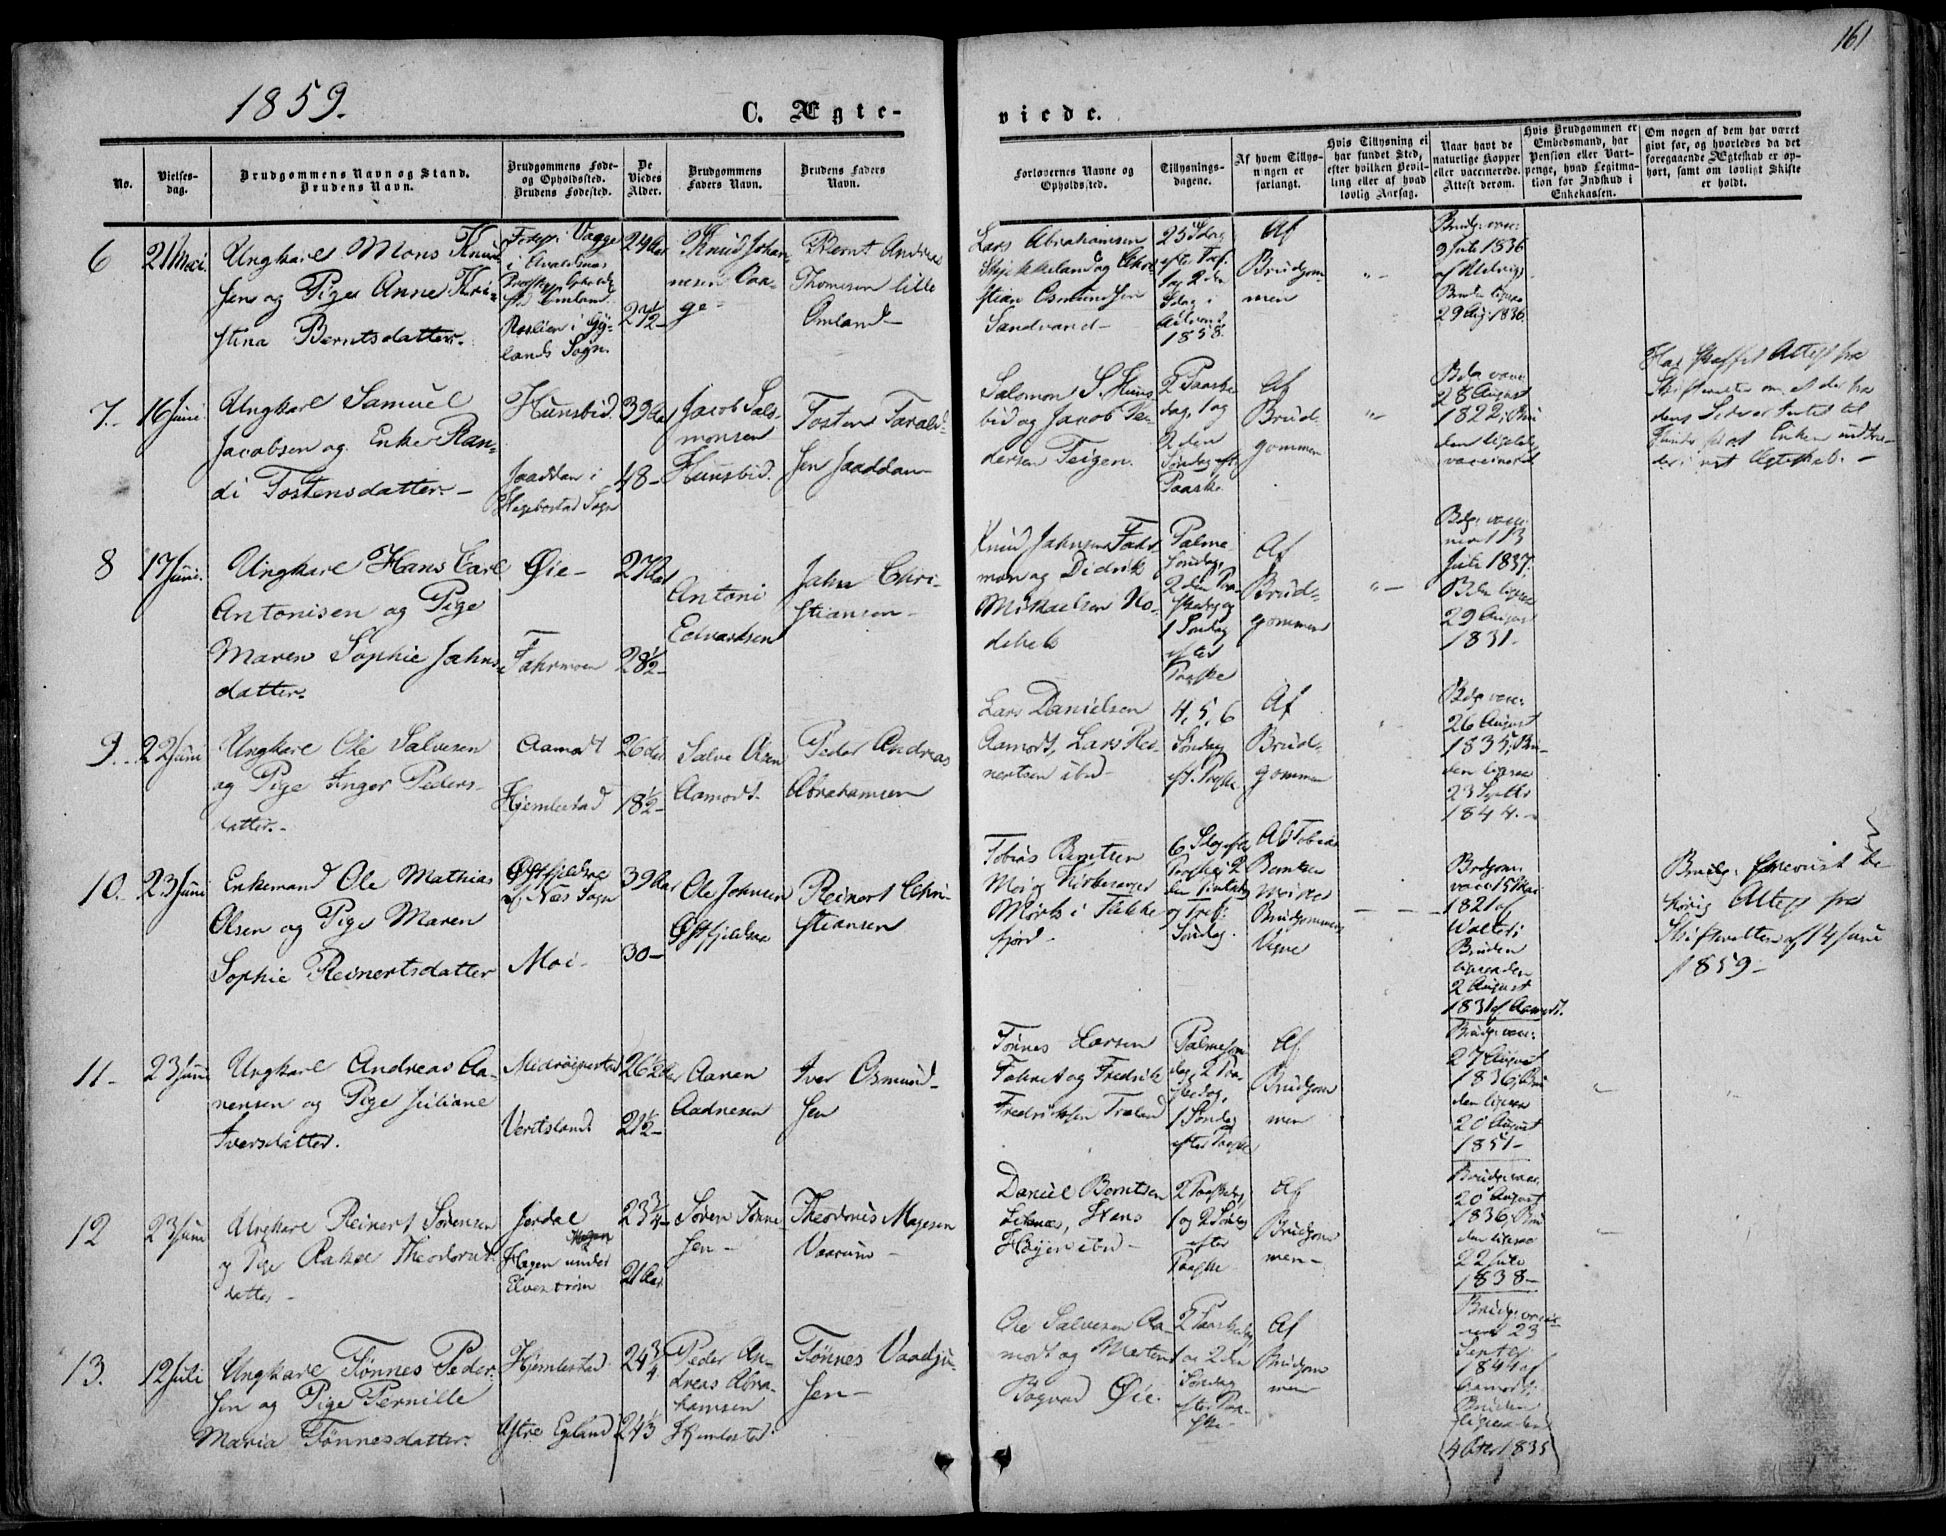 161
1859.
C. Ægte-
viede.
No.
Vielses-
dag.
Brudgommens Navn og Stand.
Brudens Navn.
Brudgommens Føde-
og Opholdssted.
Brudens Fødested.
De
Viedes
Alder.
Brudgommens
Faders Navn.
Brudens Faders
Navn.
Forlovernes Navne og
Opholdssted.
Tillysnings-
dagene.
Af hvem Tillys-
ningen er
forlangt.
Hvis Tillysning ei
har fundet Sted,
efter hvilken Bevil-
ling eller af hvad
lovlig Aarsag.
Naar havt de
naturlige Kopper
eller vaccinerede.
Attest derom.
Hvis Brudgommen er
Embedsmand, har
Pension eller Vart-
penge, hvad Legitma-
tion for Indskud i
Enkekassen.
Om nogen af dem har været
givt før, og hvorledes da det
foregaaende Ægteskab er op-
hørt, samt om lovligt Skifte
er holdt.
6
21 Mai.
Ungkarl Mons Knud-
sen og Pige Anne Kri-
stina Berntsdatter.
i Avaldsnæs
i Gy-
lands Sogn.
24 Aar
27½
Knud Johan-
nesen
Bernt Andreas
Thomesen lille
Omland
Lars Abrahamsen
og Chri-
stian Osmundsen
Sandvand
23 Sdag
efter Tref.
1 og 2 den
Sdag i
Advent
1858.
Af
Brudgom-
men
"-
Brudg. vacc.
9 Juli 1836
Bruden ligesaa
29 Aug. 1836.
7.
16 Juni
Ungkarl Samuel
Jacobsen og Enke Ran-
di Tostensdatter.
Hunsbid.
Jaaddan i
Hegebostad Sogn
39 Aar
48
Jacob Salo-
monsen
Hunsbid.
Tosten Tarald-
sen Jaaddan
Salomon S. Huns
bid og Jacob Pe-
dersen Teigen.
2 Paaske
dag, 1 og
2 den
Søndag eft.
Paaske
Af
Brud-
gommen
"-
Bdg. vacc.
28 August
1822, Bru
den ligeledes
vaccineret
Har skaffet Attest fra
Skifteretten om at der fra
dens Side er Intet til
Hinder for at Enken indtræ-
der i nyt Ægteskab.
8
17 Juni.
Ungkarl Hans Carl
Antonisen og Pige
Maren Sophie Jahns
datter.
Øie
Fahrmoen
27 Aar
28½
Antoni
Edvardsen
Jahn Chri-
stiansen
Knud Jahnsen Fahr
moen og Didrik
Mikaelsen No-
debek
Palme
Søndag,
2 den Paa-
skedag og
1 Søndag
efter
Paaske
Af
Brud-
gommen
"-
Bdg. vacci-
neret 13
Juli 1837.
Bden ligesaa
29 August
1831.
9.
22 Juni
Ungkarl Ole Salvesen
og Pige Inger Peders-
datter.
Aamodt
Hjemlestad
26 Aar
18½
Salve Olsen
Aamodt.
Peder Andreas
Abrahamsen
Lars Danielsen
Aamodt, Lars Rei-
nertsen ibid
4, 5, 6
Søndag
eft. Paaske
Af
Brud-
gommen
Bdg. vacc.
26 August
1835, Bru-
den ligesaa
23 Septbr
1844.
10.
23 Juni
Enkemand Ole Mathias
Olsen og Pige Maren
Sophie Reinertsdatter
i Næs Sogn
Moi
39 Aar
30
Ole Johnsen
Reinert Chri-
stiansen
Tobias Berntsen
Moi og Kirkesanger
i Fække
fjord
6 Sdag efter
Paaske, 2
den Pintsdag
og Tref.
Søndag.
Af Tobias
Berntsen
Moi paa
Brudgommens
Vegne
Brdgom.
vacc. 15 Mai
1821 af
Bruden
ligesaa den
2 August
1831 af Aamodt.
Brudg. foreviist be-
hørig Attest fra
Skifteretten af 14 Juni
1859
11
23 Juni
Ungkarl Andreas Aa-
nensen og Pige Juliane
Iversdatter.
26½ Aar
21½
Aanen
Aadnesen
Iver Osmund-
sen
Tønnes Larsen
og Fredrik
Fredriksen Træland
Palmesøn
dag, 2 Paa-
skedag,
1 Søndag
efter Paaske
Af
Brudgom
men
Brudg. vacc.
27 August
1836, Bru
den ligesaa
20 August
1851
12
23 Juni
Ungkarl Reinert Sørensen
og Pige Rakel Theodorus-
datter
Jerdal
Hagen
Hagen under
Elvestrøm
23¾
21 Aar
Søren Tønne
sen
Theodorus Magesen
Daniel Berntsen
Hans
ibid
2 Paaskedag
1 og 2 Søndag
efter
Paaske
Af
Brudgom
men
Brudg. vacc.
20 August
1836, Bru
den ligesaa
22 Juli
1838
13.
12 Juli
Ungkarl Tønnes Peder-
sen og Pige Pernille
Maria Tønnesdatter.
Hjemlestad
Ystre Egeland
24¾
24⅓
Peder An-
dreas Abra-
hamsen
Hjemlestad
Tønnes
sen
Ole Salvesen Aa-
modt og Morten
Øie.
2 Paaskedag
1 og 2 den
Søndag
efter Paa-
ske
Af
Brudgom
men
Brudg. vacci-
neret 23
Septbr
1844 af
Aamodt.
Bruden
ligesaa den
4 Octbr 1835